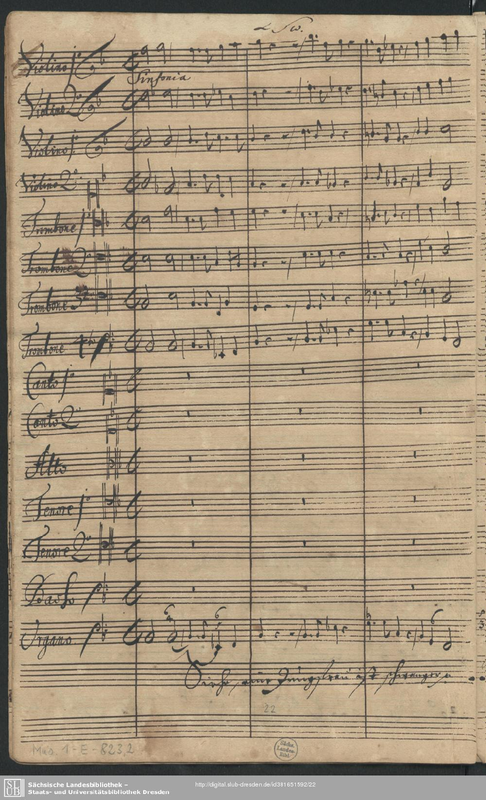 Sinfonia
Violino 1º
Violino 2º
Violino 1º
Violino 2º
Trombone 1º
Trombone 2º
Trombone 3º
Trombone 4º
Canto 1º
Canto 2º
Alto
Tenore 1º
Tenore 2º
Basso
Organo
Siehe, eine Jungfrau ist schwanger
22
Mus. 1-E-823,2
Sächs. Landes. Bibl.
SLUB DRESDEN
Sächsische Landesbibliothek –
Staats- und Universitätsbibliothek Dresden
http://digital.slub-dresden.de/id391651592/22